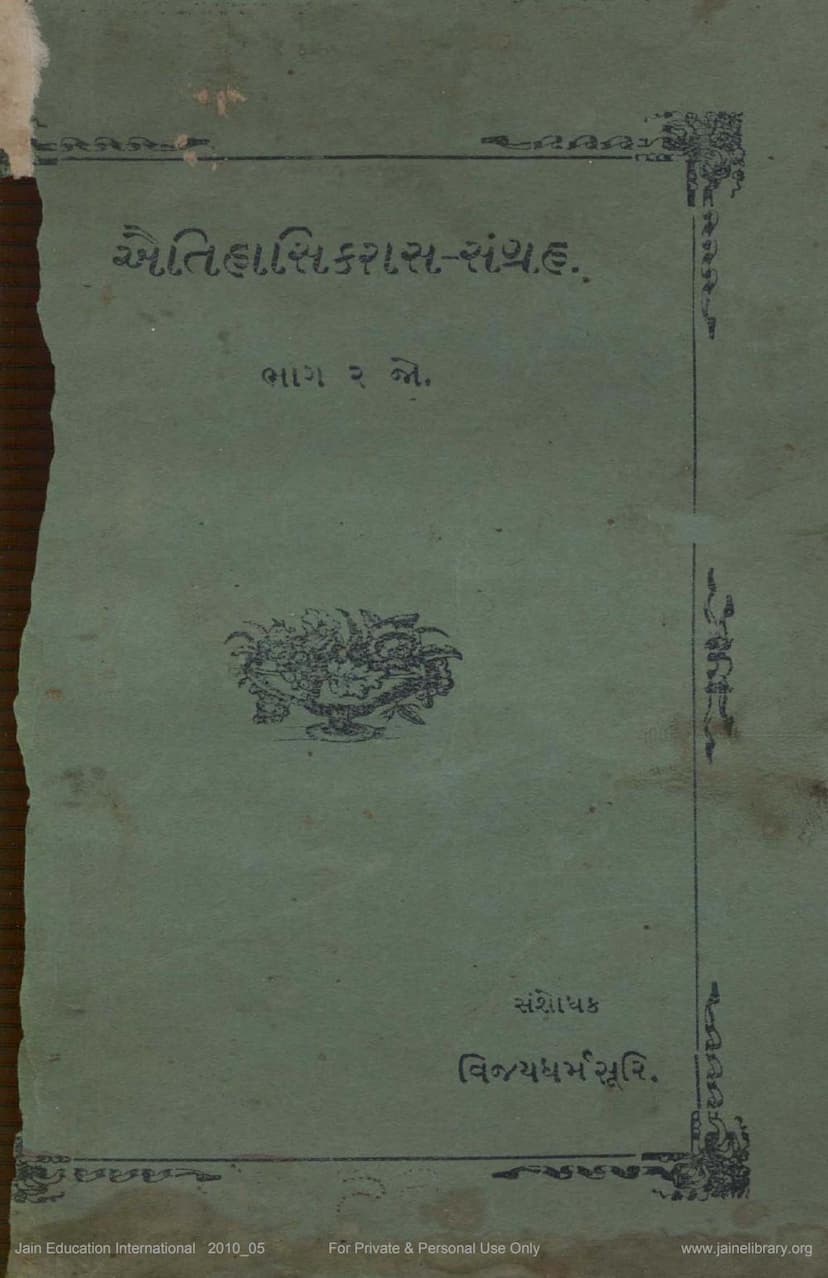 ઐતિહાસિકરાસ-સંગ્રહ.
ભાગ ૨ જો.
સંશોધક
વિજયધર્મસૂરિ.
Jain Education International 2010_05 For Private & Personal Use Only www.jainelibrary.org